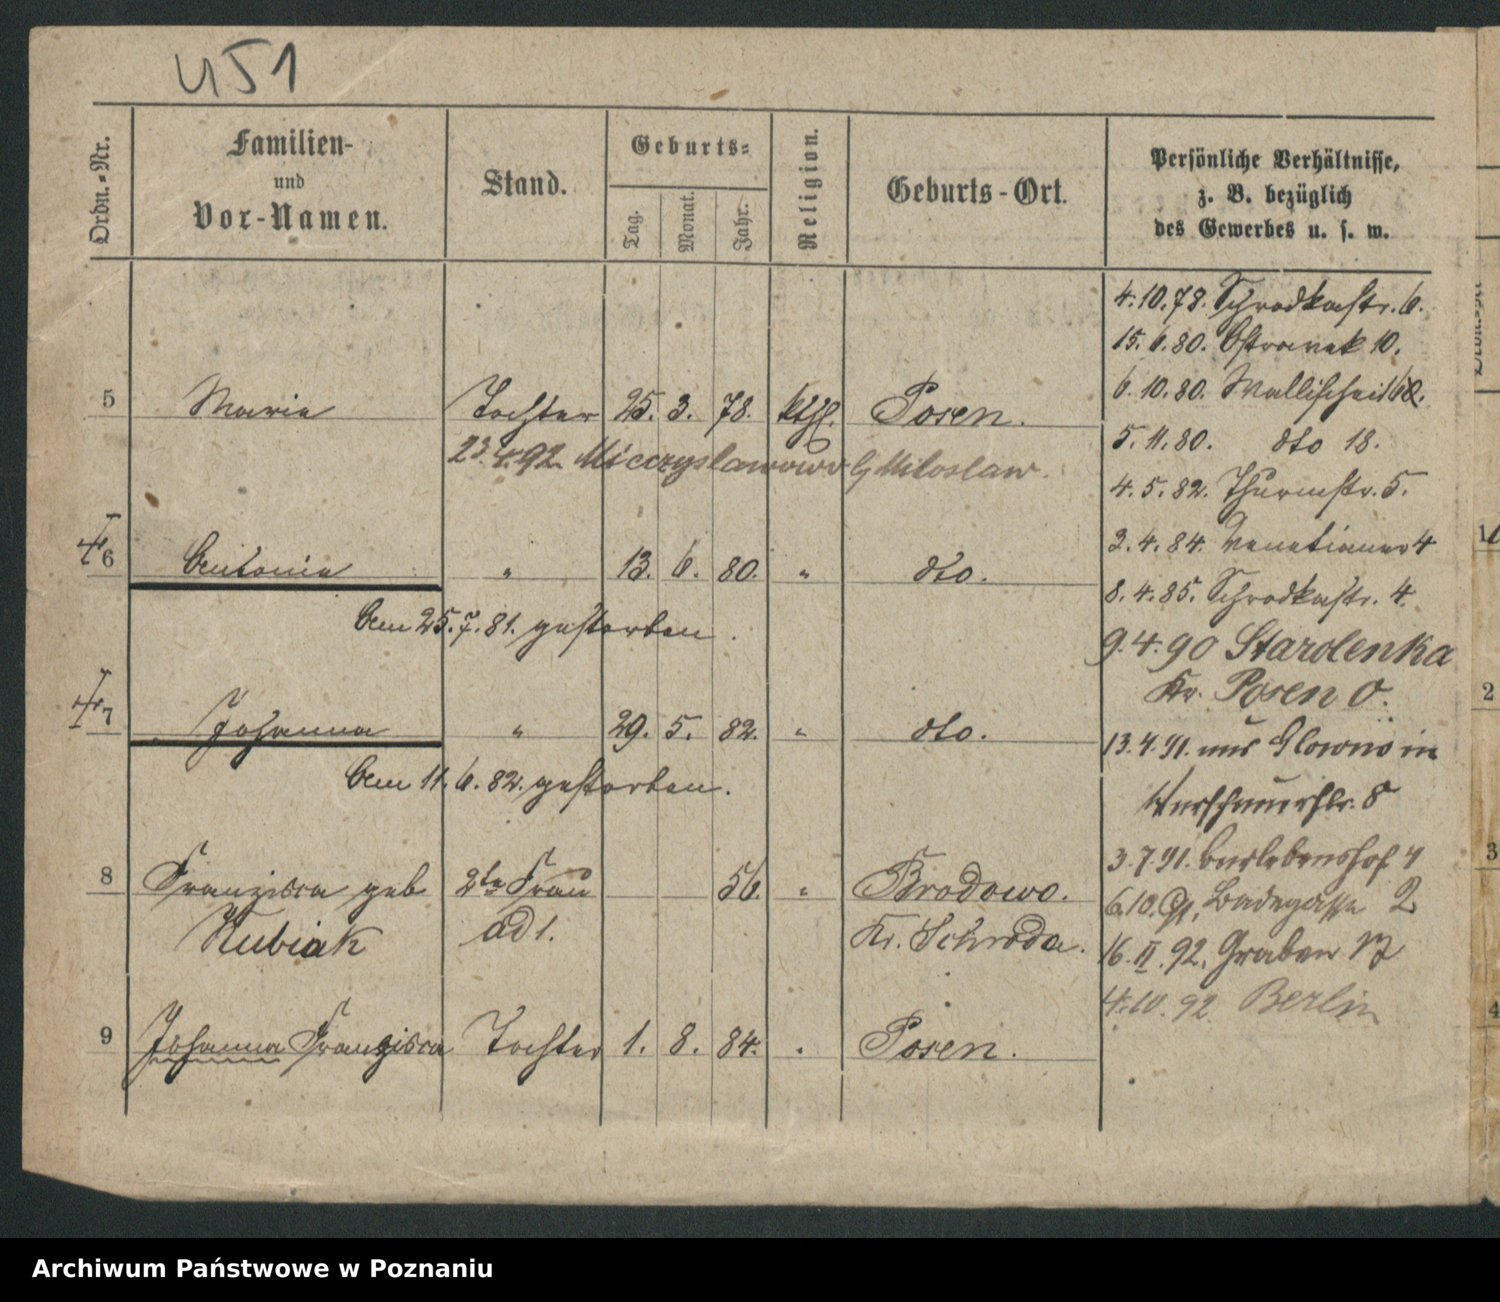 451
Ordn.-Nr. Familien- und Vor-Namen. Stand. Geburts- Tag. Monat. Jahr. Religion. Geburts-Ort. Persönliche Verhältnisse, z. B. bezüglich des Gewerbes u. s. w.
4.10.78. Schrodkastr. 6.
15.6.80. Ostrowek 10.
6.10.80. Wallischei
5 Marie Tochter 25. 3. 78. kth. Posen.
5.11.80. dto 18.
23.4.92 Mieczyslawowo b/ Miloslaw.
4.5.82. Thurmstr. 5.
3.4.84. Venetianer 4
6 Antonie " 13. 6. 80. " dto.
8.4.85. Schrodkastr. 4.
Am 25.7.81. gestorben.
9.4.90 Starolenka
Kr. Posen O.
7 Johanna " 29. 5. 82. " dto.
13.4.91. aus Glowno in
Am 11.6.82. gestorben.
8
3.7.91. 4
8 Franzisca geb 2te Frau 56. " Brodowo.
6.10.91. Badegasse 2
Kubiak ad 1. Kr. Schroda.
16.II.92. Graben
4.10.92 Berlin
9 Johanna Franzisca Tochter 1. 8. 84. " Posen.
11
2
3
4
Archiwum Państwowe w Poznaniu